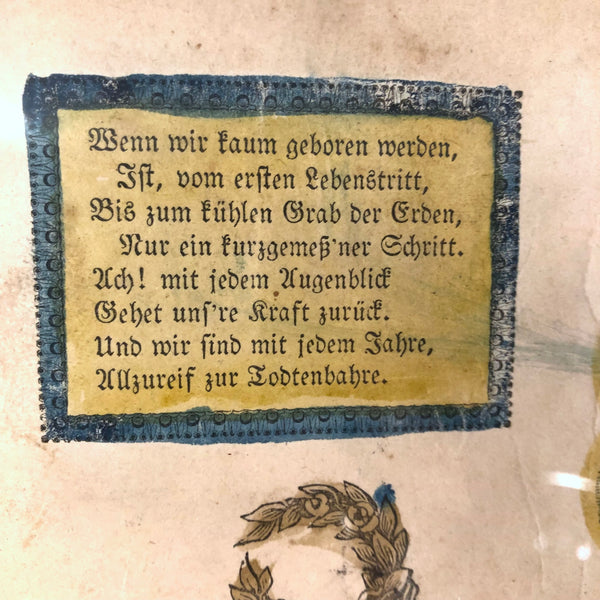 Wenn wir kaum geboren werden,
Ist, vom ersten Lebenstritt,
Bis zum kühlen Grab der Erden,
Nur ein kurzgemeß'ner Schritt.
Ach! mit jedem Augenblick
Gehet uns're Kraft zurück.
Und wir sind mit jedem Jahre,
Allzureif zur Todtenbahre.